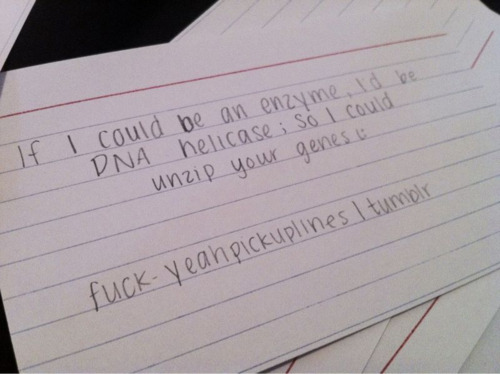 If I could be an enzyme, I'd be
DNA helicase; so I could
unzip your genes (:
fuck-yeahpickuplines | tumblr